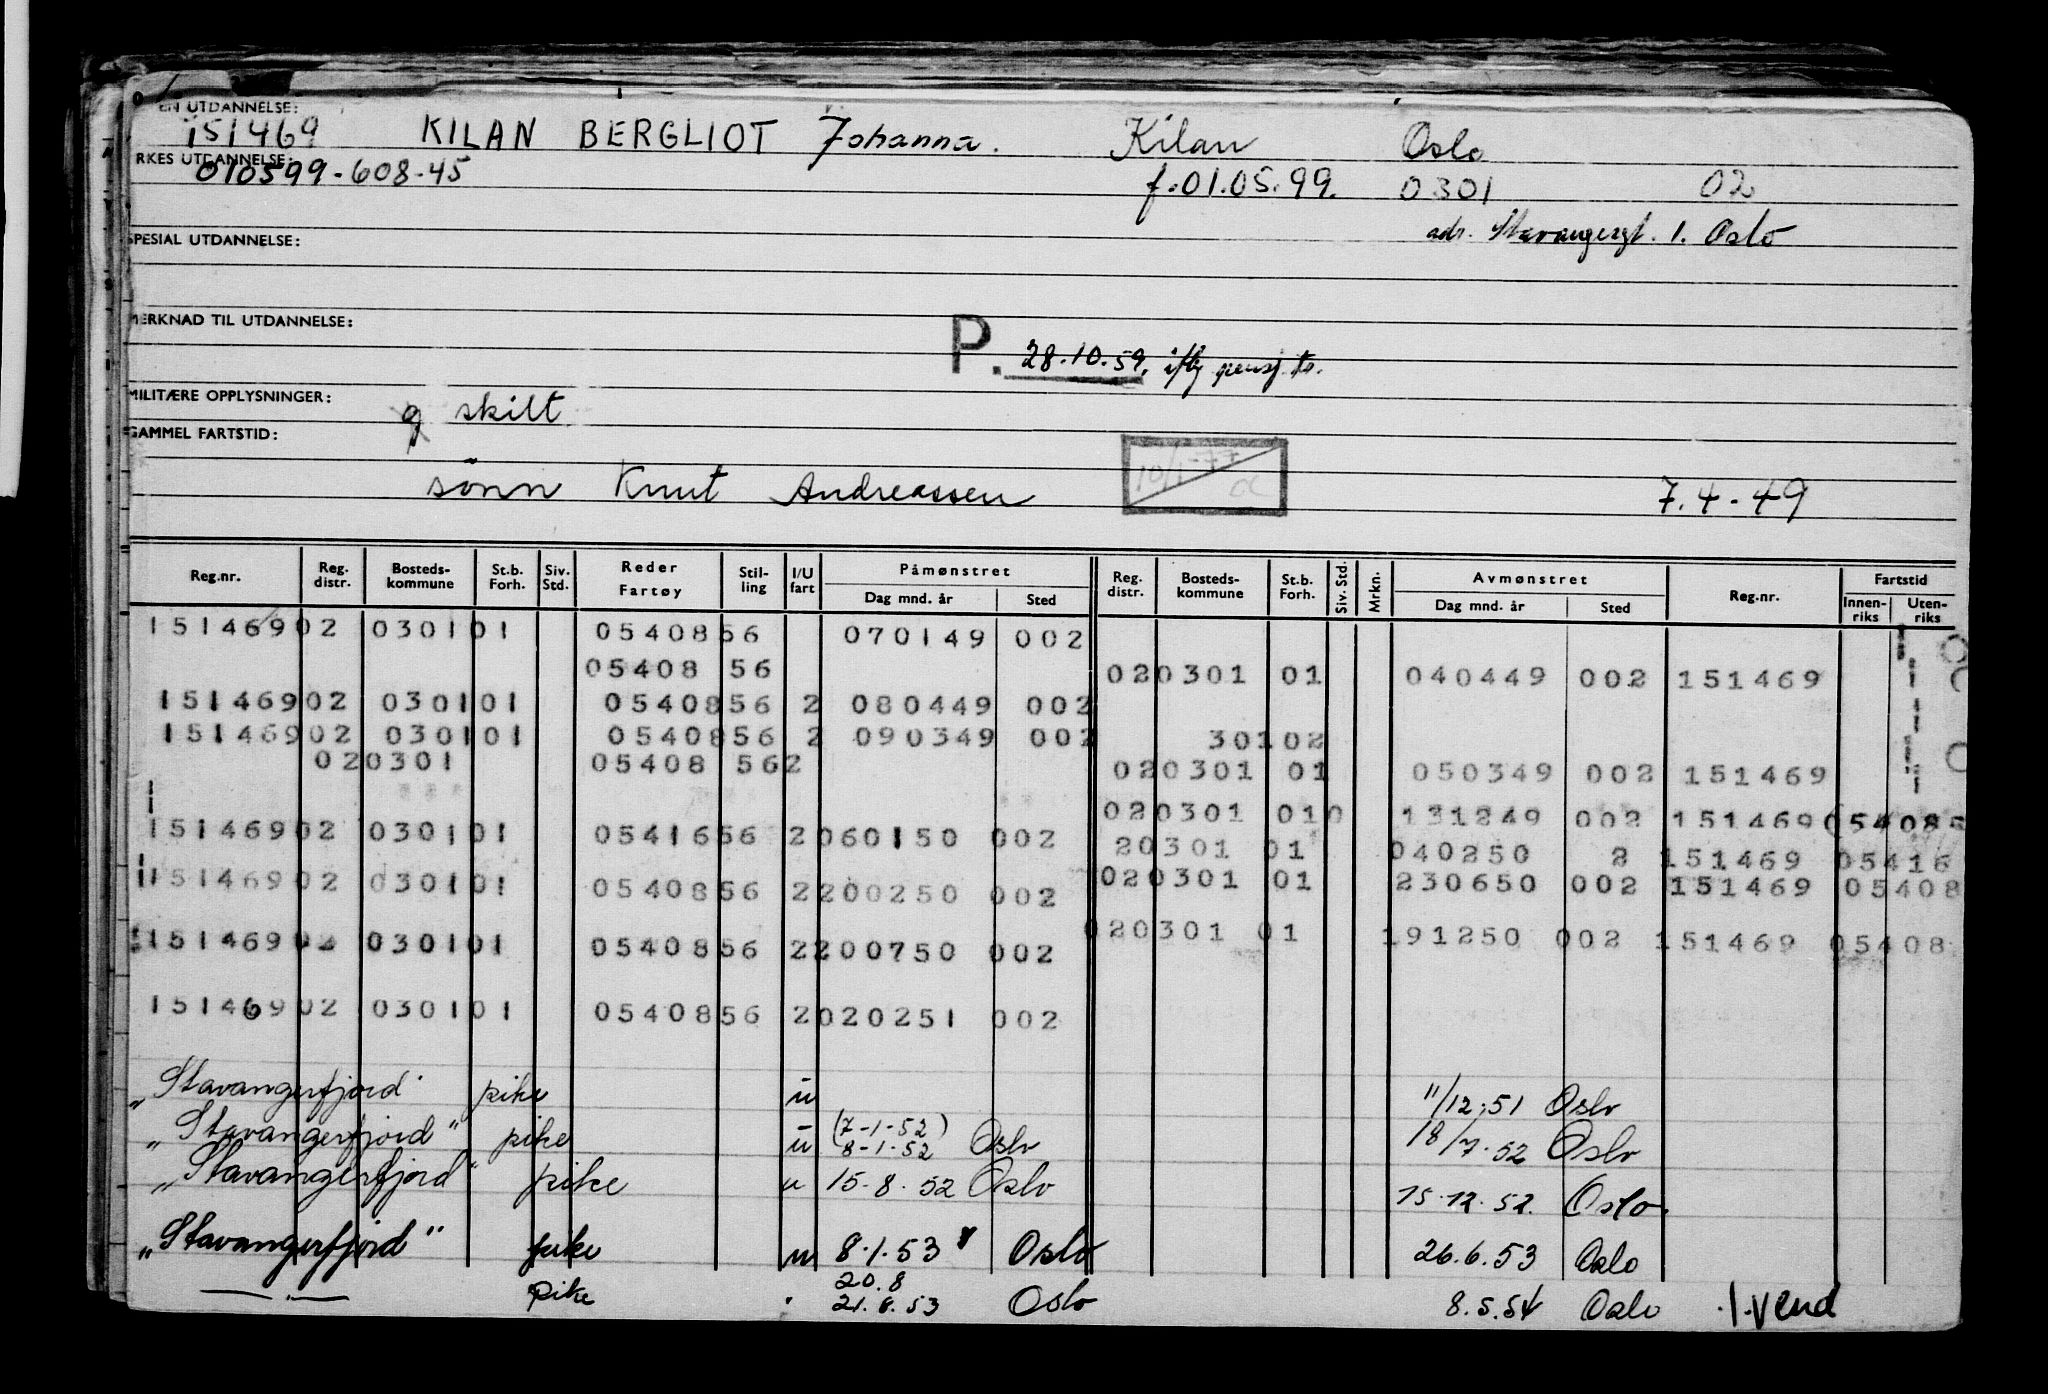 EN UTDANNELSE:
151469 KILAN BERGLIOT Johanna. Kilan Oslo
RKES UTDANNELSE:
010599-608-45 f. 01.05.99. 0301 02
adr. Stavangergt. 1. Oslo
SPESIAL UTDANNELSE:
MERKNAD TIL UTDANNELSE:
P. 28.10.59. iflg pensj. tr.
MILITÆRE OPPLYSNINGER:
g skilt
GAMMEL FARTSTID:
sönn Knut Andreassen 10/1-77 7.4-49
Reg.nr. Reg. distr. Bosteds-kommune St.b. Forh. Siv. Std. Reder Fartøy Stil-ling I/U fart Påmønstret Dag mnd. år Sted Reg. distr. Bosteds-kommune St.b. Forh. Siv. Std. Mrkn. Avmønstret Dag mnd. år Sted Reg.nr. Fartstid Innen-riks Uten-riks
15146902 030101 0540856 070149 002
05408 56 020301 01 040449 002 151469
15146902 030101 0540856 2 080449 002
15146902 030101 0540856 2 090349 002 30102
020301 05408 562 020301 01 050349 002 151469
020301 010 131249 002 151469 05408
15146902 030101 0541656 2060150 002 20301 01 040250 2 151469 05416
15146902 030101 0540856 2200250 002 020301 01 230650 002 151469 05408
15146902 030101 0540856 2200750 002 020301 01 191250 002 151469 05408
15146902 030101 0540856 2020251 002
"Stavangerfjord" pike u 11/12.51 Oslo
"Stavangerfjord" pike u (7-1-52) 8-1-52 Oslo 18/7.52 Oslo
"Stavangerfjord" pike u 15-8.52 Oslo 15.12.52. Oslo.
"Stavangerfjord" pike u 8.1.53 Oslo 26.6.53 Oslo
20.8
—.— pike 21.8.53 Oslo 8.5.54 Oslo .1.vend